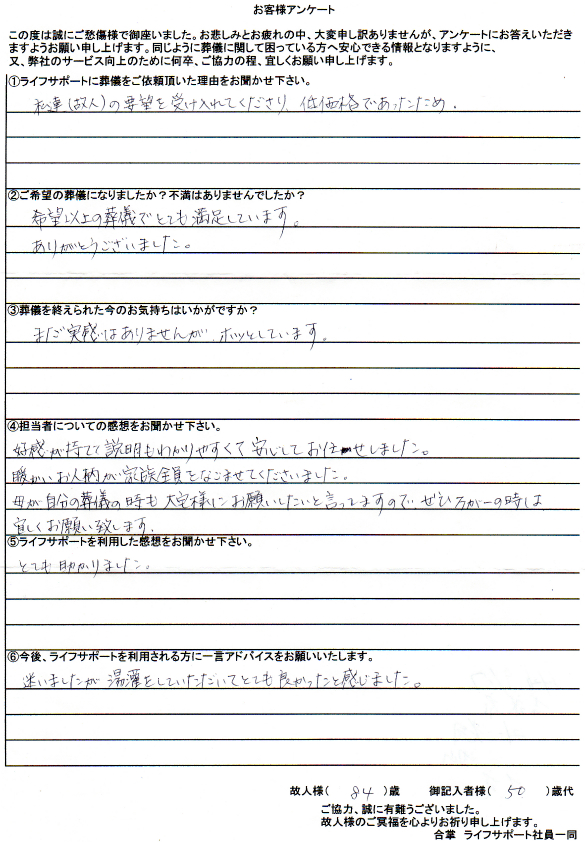 お客様アンケート
この度は誠にご愁傷様で御座いました。お悲しみとお疲れの中、大変申し訳ありませんが、アンケートにお答えいただき
ますようお願い申し上げます。同じように葬儀に関して困っている方へ安心できる情報となりますように、
又、弊社のサービス向上のために何卒、ご協力の程、宜しくお願い申し上げます。
①ライフサポートに葬儀をご依頼頂いた理由をお聞かせ下さい。
私達(故人)の要望を受け入れてくださり、低価格であったため.
②ご希望の葬儀になりましたか？不満はありませんでしたか？
希望以上の葬儀でとても満足しています。
ありがとうございました。
③葬儀を終えられた今のお気持ちはいかがですか？
まだ実感はありませんが、ホッとしています。
④担当者についての感想をお聞かせ下さい。
好感が持てて説明もわかりやすくて安心してお任せしました。
暖かいお人柄が家族全員をなごませてくださいました。
母が自分の葬儀の時も大宅様にお願いしたいと言ってますので、ぜひ万が一の時は
宜しくお願い致します.
⑤ライフサポートを利用した感想をお聞かせ下さい。
とても助かりました。
⑥今後、ライフサポートを利用される方に一言アドバイスをお願いいたします。
迷いましたが湯灌をしていただいてとても良かったと感じました。
故人様( 84 )歳 御記入者様( 50 )歳代
ご協力、誠に有難うございました。
故人様のご冥福を心よりお祈り申し上げます。
合掌 ライフサポート社員一同